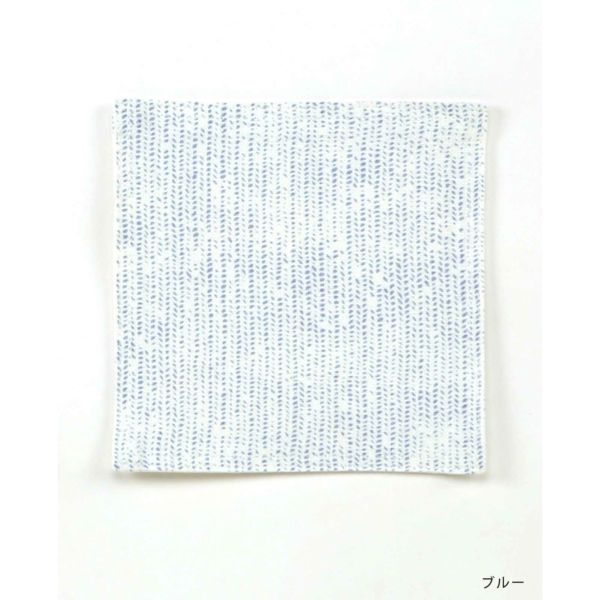 ブルー